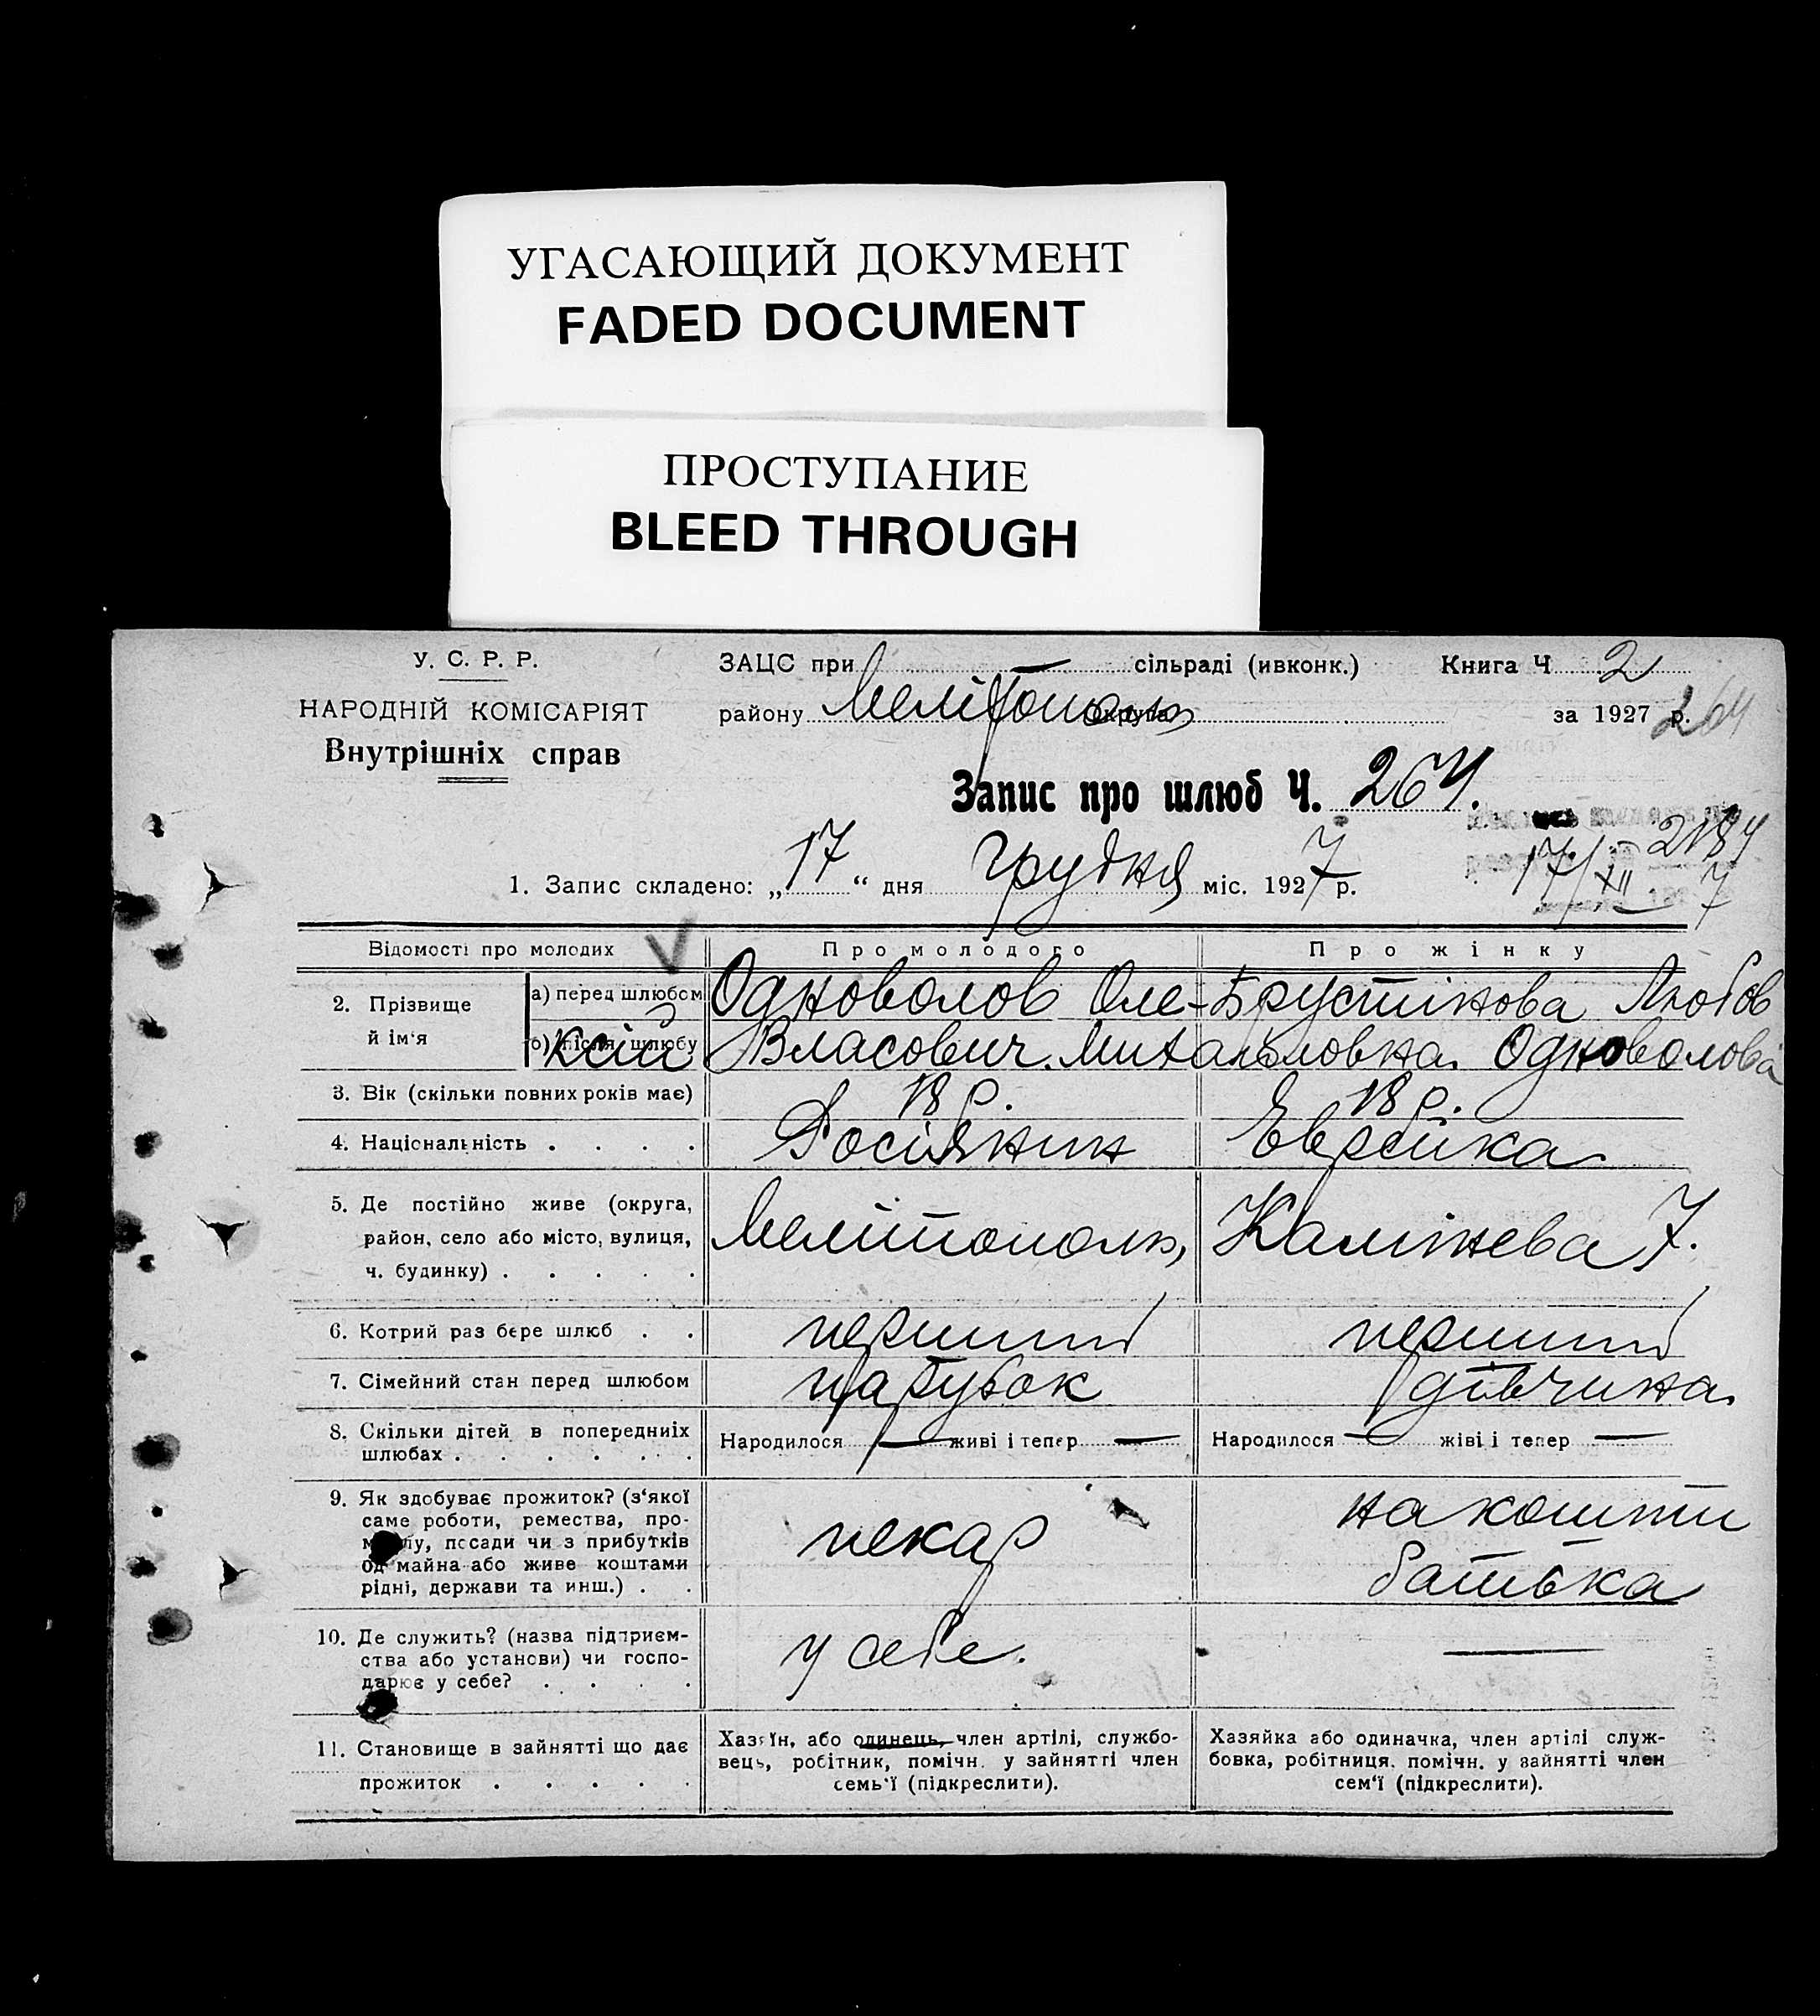 УГАСАЮЩИЙ ДОКУМЕНТ
FADED DOCUMENT
ПРОСТУПАНИЕ
BLEED THROUGH
У. С. Р. Р.
НАРОДНІЙ КОМІСАРІЯТ
Внутрішніх справ
ЗАЦС при — сільраді (ивконк.) Книга Ч 2
району Мелітополь округа за 1927 р. 264
Запис про шлюб Ч. 264.
2184
1. Запис складено: „17“ дня грудня міс. 1927 р.
17/XII 7
Відомості про молодих V Про молодого Про жінку
2. Прізвище й ім'я
а) перед шлюбом Одноволов Оле- Брустінова Любов
б) після шлюбу ксій Власович. Михайловна. Одноволова
3. Вік (скільки повних років має) 18 р. 18 р.
4. Національність . . . . Росіянин Еврейка
5. Де постійно живе (округа,
район, село або місто, вулиця,
ч. будинку) . . . . . Мелітополь, Калінева 7.
6. Котрий раз бере шлюб . . перший перший
7. Сімейний стан перед шлюбом парубок дівчина
8. Скільки дітей в попередніх
шлюбах . . . . . . Народилося — живі і тепер — Народилося — жіві і тепер —
9. Як здобуває прожиток? (з'якої
саме роботи, ремества, про-
мислу, посади чи з прибутків
од майна або живе коштами
рідні, держави та инш.) . .
пекар
на кошти
батька
10. Де служить? (назва підприєм-
ства або установи) чи госпо-
дарює у себе? . . . .
у себе. —
11. Становище в зайнятті що дає
прожиток . . . . .
Хазяїн, або одинець, член артілі, службо-
вець, робітник, помічн. у зайнятті член
семь'ї (підкреслити).
Хазяйка або одиначка, член артілі служ-
бовка, робітниця, помічн. у зайнятті член
сем'ї (підкреслити).